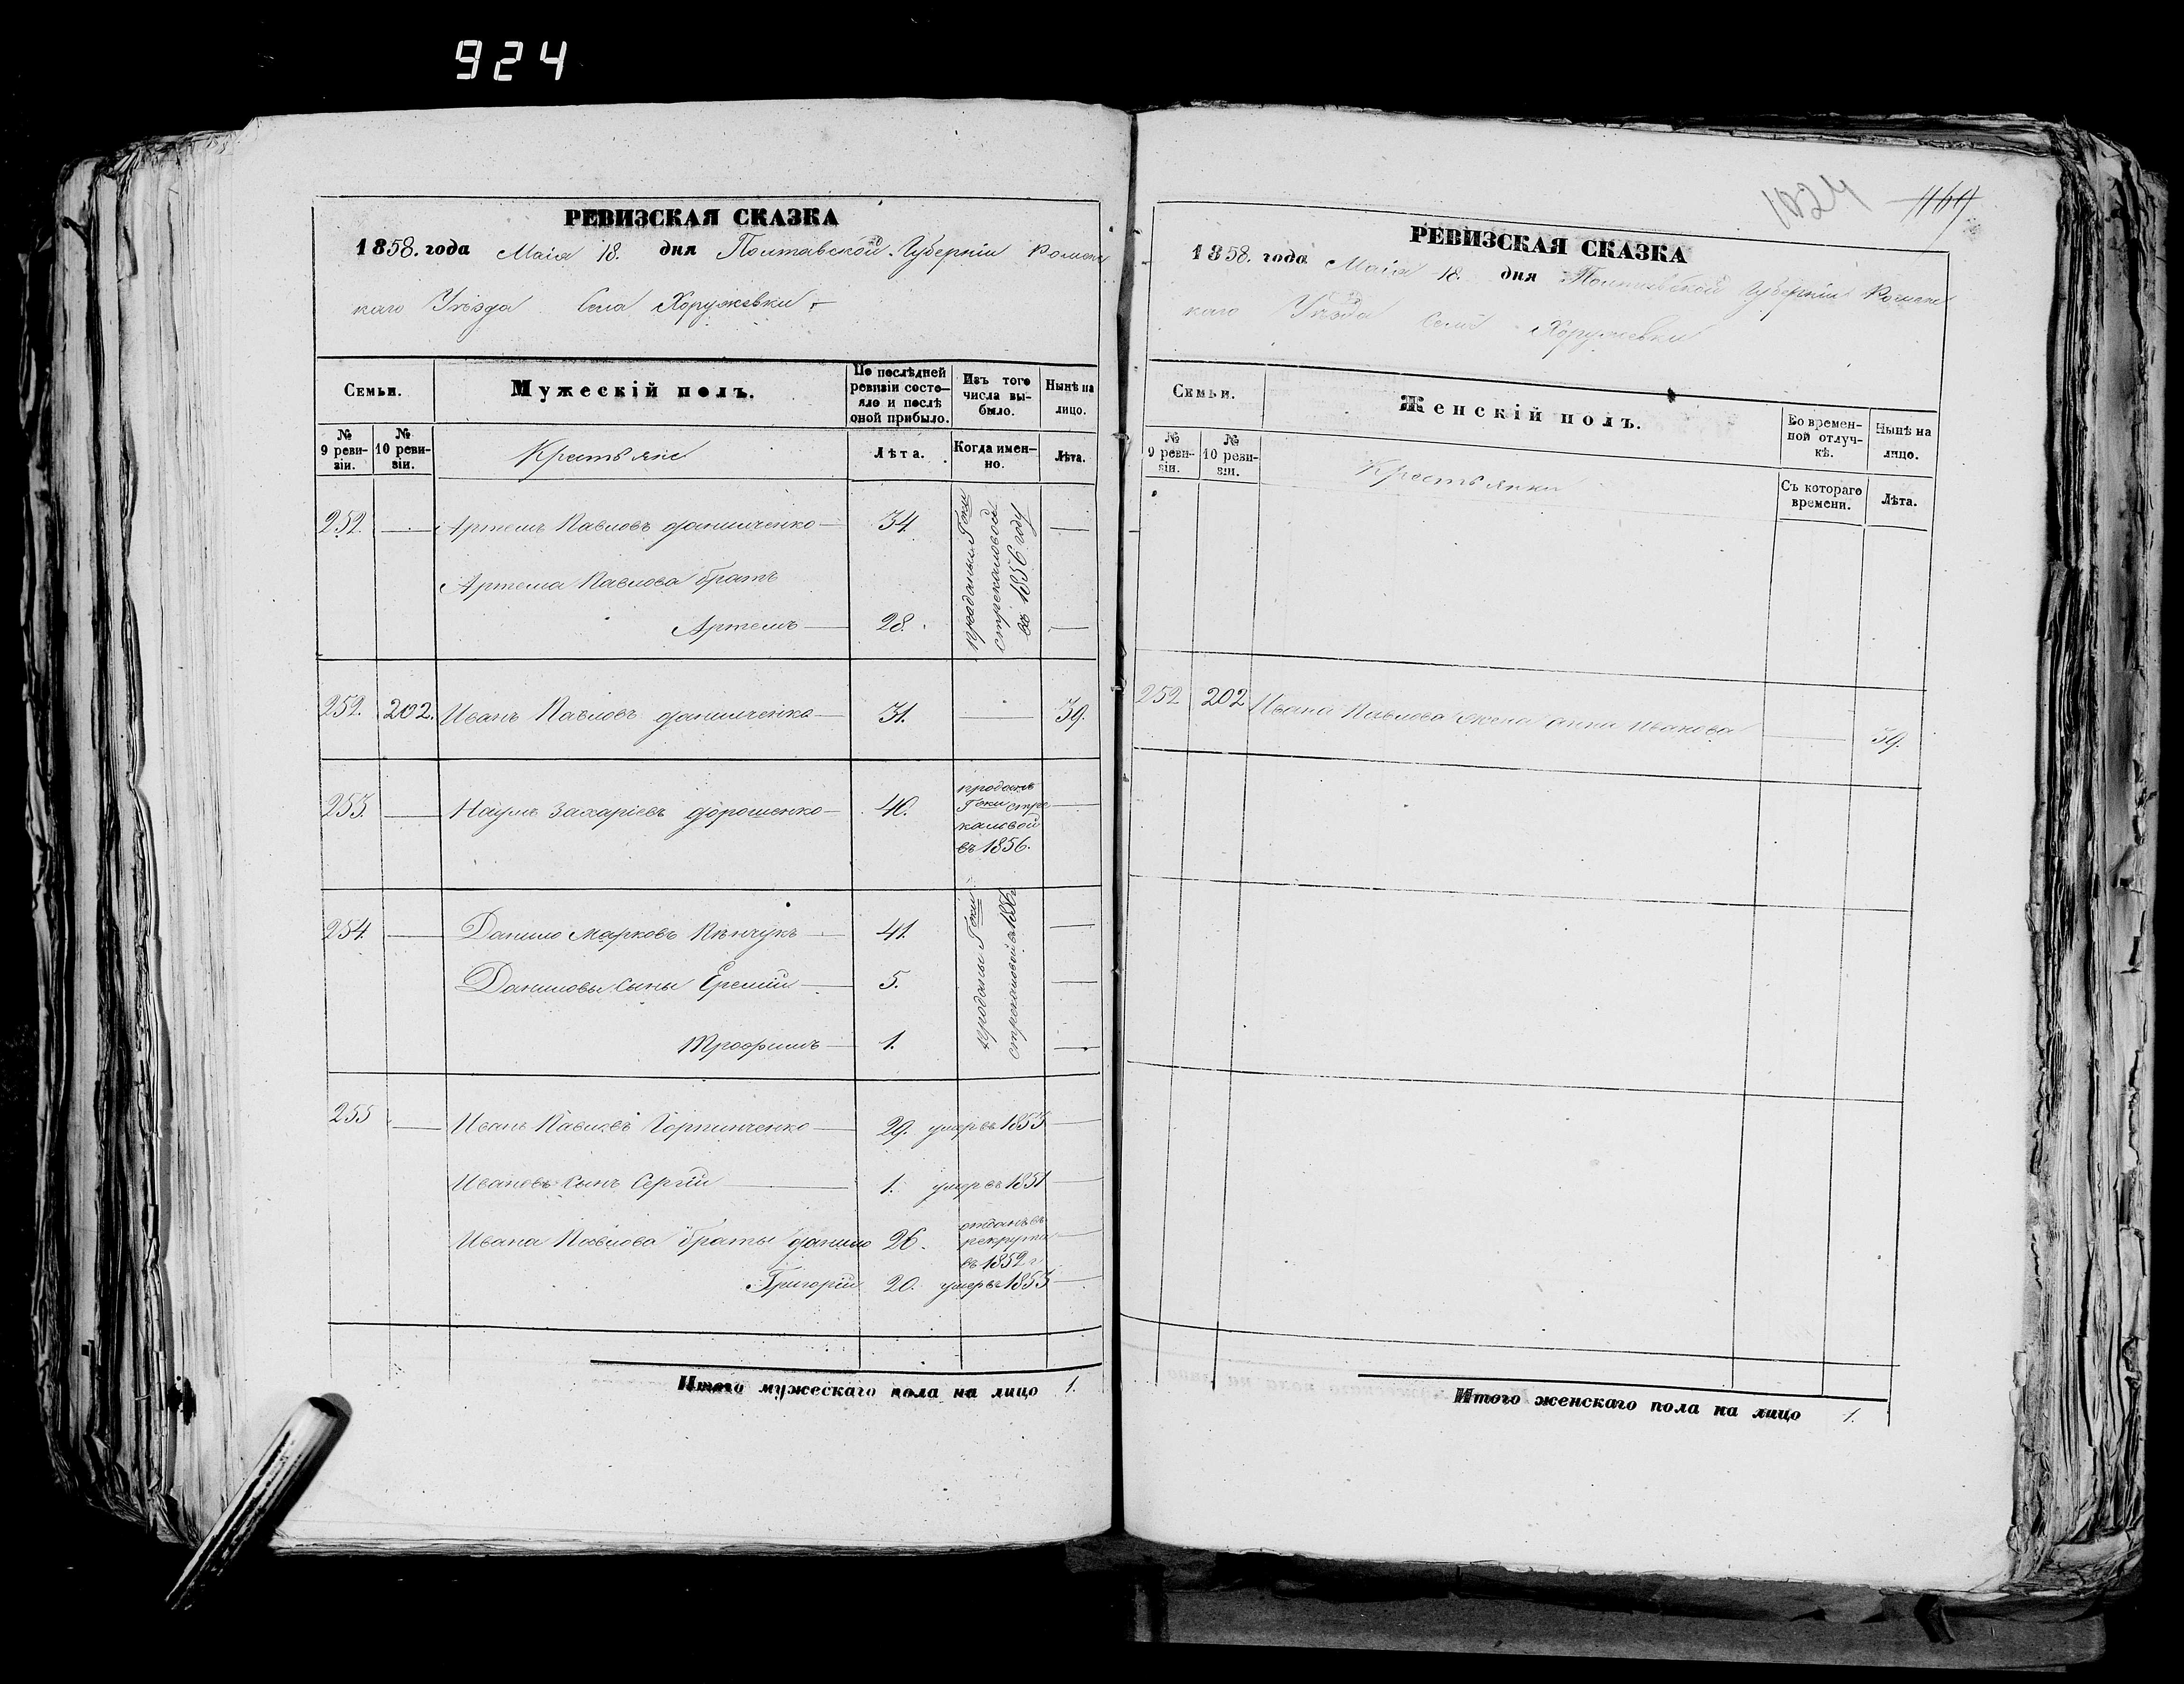 924
РЕВИЗСКАЯ СКАЗКА
1858. года Маія 18. дня Полтавской Губерніи Роменс
каго Уѣзда Села Хоружевки
Семьи.
Мужескій полъ.
По послѣдней ревизіи состояло и послѣ оной прибыло.
Изъ того числа выбыло.
Нынѣ на лицо.
№ 9 ревизіи.
№ 10 ревизіи.
Крестьяне
Лѣта.
Когда именно.
Лѣта.
252. — Артемъ Павловъ Данильченко — 34 —
Артема Павлова братъ
Артемъ — 28. —
проданы Г-жи
стрекаловой
въ 1856 году
252. 202. Иванъ Павловъ Данильченко — 31. — 39.
253. — Наумъ Захаріевъ Дорошенко — 40. —
проданъ
Г-жи стре
каловой
въ 1856.
254. — Данило Марковъ — 41. —
Даниловы сыны Еремій — 5. —
Трофимъ — 1. —
проданы Г-жи
стрекаловой в 1856
255 — Иванъ Павловъ Горпинченко — 29. умеръ въ 1853 —
Ивановъ сынъ Сергій — 1. умеръ въ 1851 —
Ивана Павлова браты Данило 26. отданъ въ
рекруты
въ 1852 г —
Григорій 20. умеръ въ 1853 —
Итого мужескаго пола на лицо 1.
1024
РЕВИЗСКАЯ СКАЗКА
1858. года Маія 18. дня Полтавской Губерніи Роменс
каго Уѣзда Села Хоружевки
Семьи.
Женскій полъ.
Во временной отлучкѣ.
Нынѣ на лицо.
№ 9 ревизіи.
№ 10 ревизіи.
Крестьянки
Съ котораго времени.
Лѣта.
252 202 Ивана Павлова жена анна Иванова — 39.
Итого женскаго пола на лицо 1.